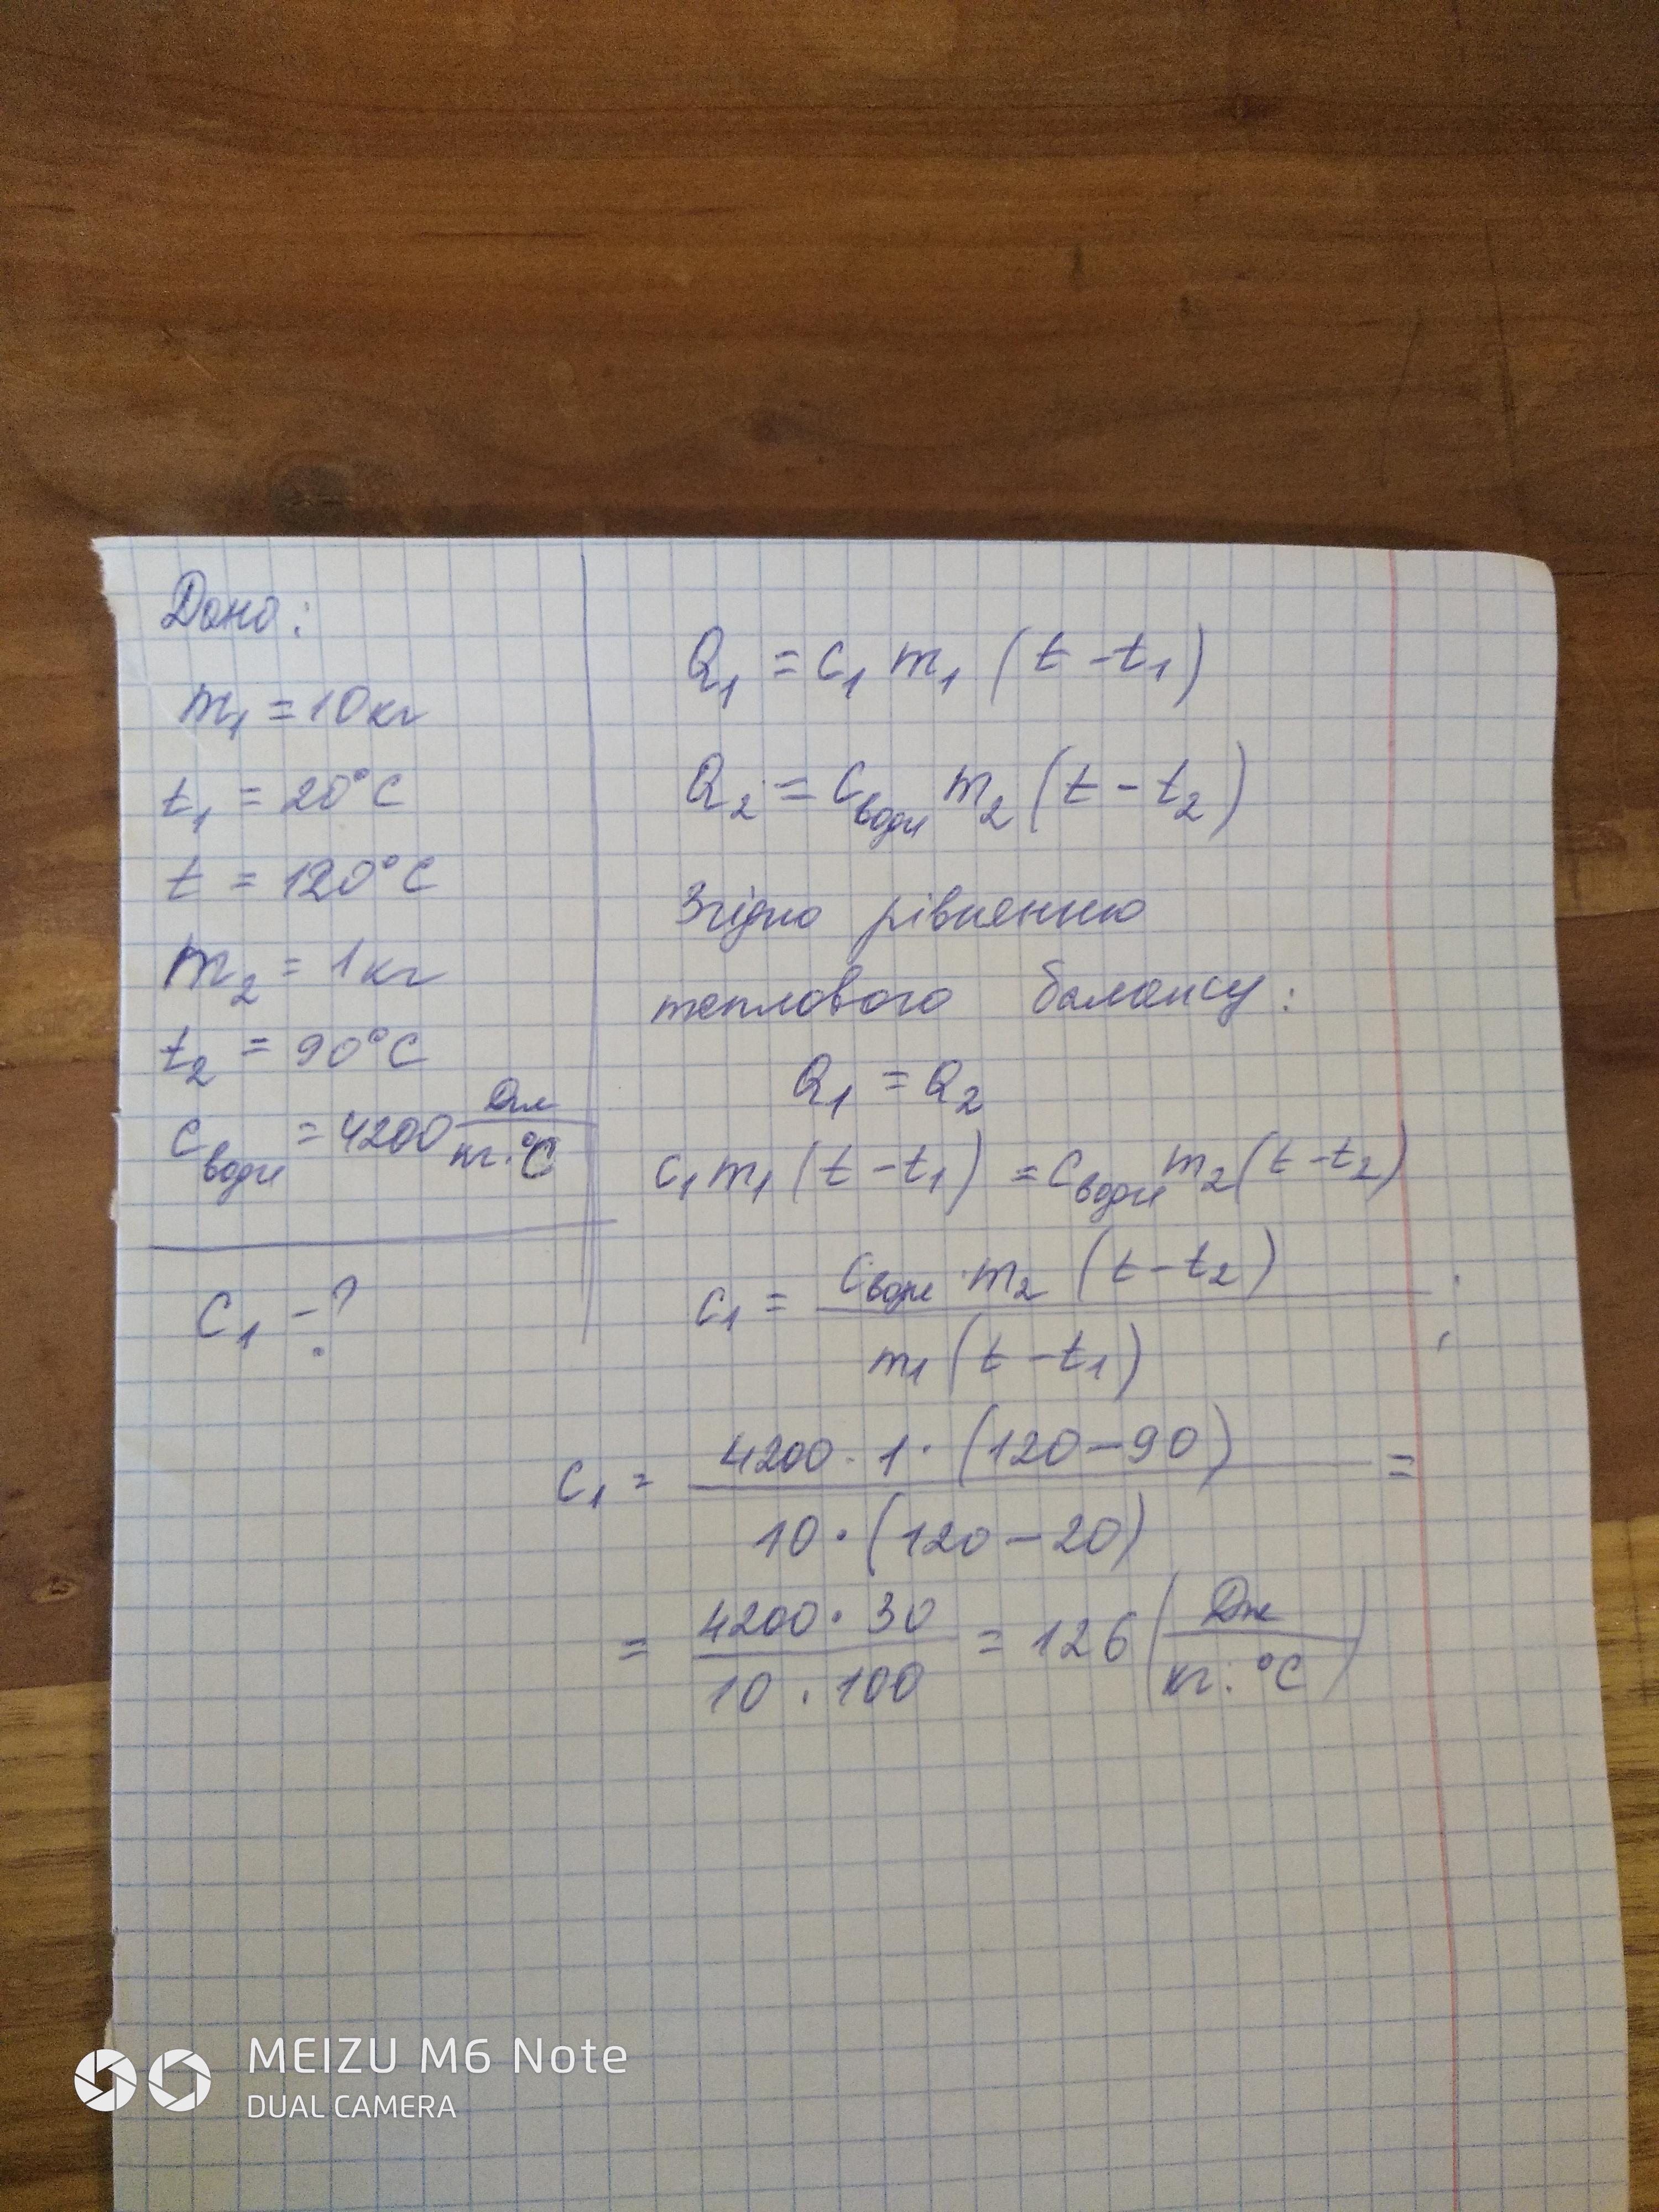 Дано:
m₁ = 10 кг
t₁ = 20°C
t = 120°C
m₂ = 1 кг
t₂ = 90°C
c води = 4200 Дж/кг·°C
c₁ - ?
Q₁ = c₁ m₁ (t - t₁)
Q₂ = c води m₂ (t - t₂)
Згідно рівненню
теплового балансу:
Q₁ = Q₂
c₁ m₁ (t - t₁) = c води m₂ (t - t₂)
c₁ = c води · m₂ (t - t₂) / m₁ (t - t₁) ;
c₁ = 4200 · 1 · (120 - 90) / 10 · (120 - 20) =
= 4200 · 30 / 10 · 100 = 126 (Дж/кг·°C)
MEIZU M6 Note
DUAL CAMERA